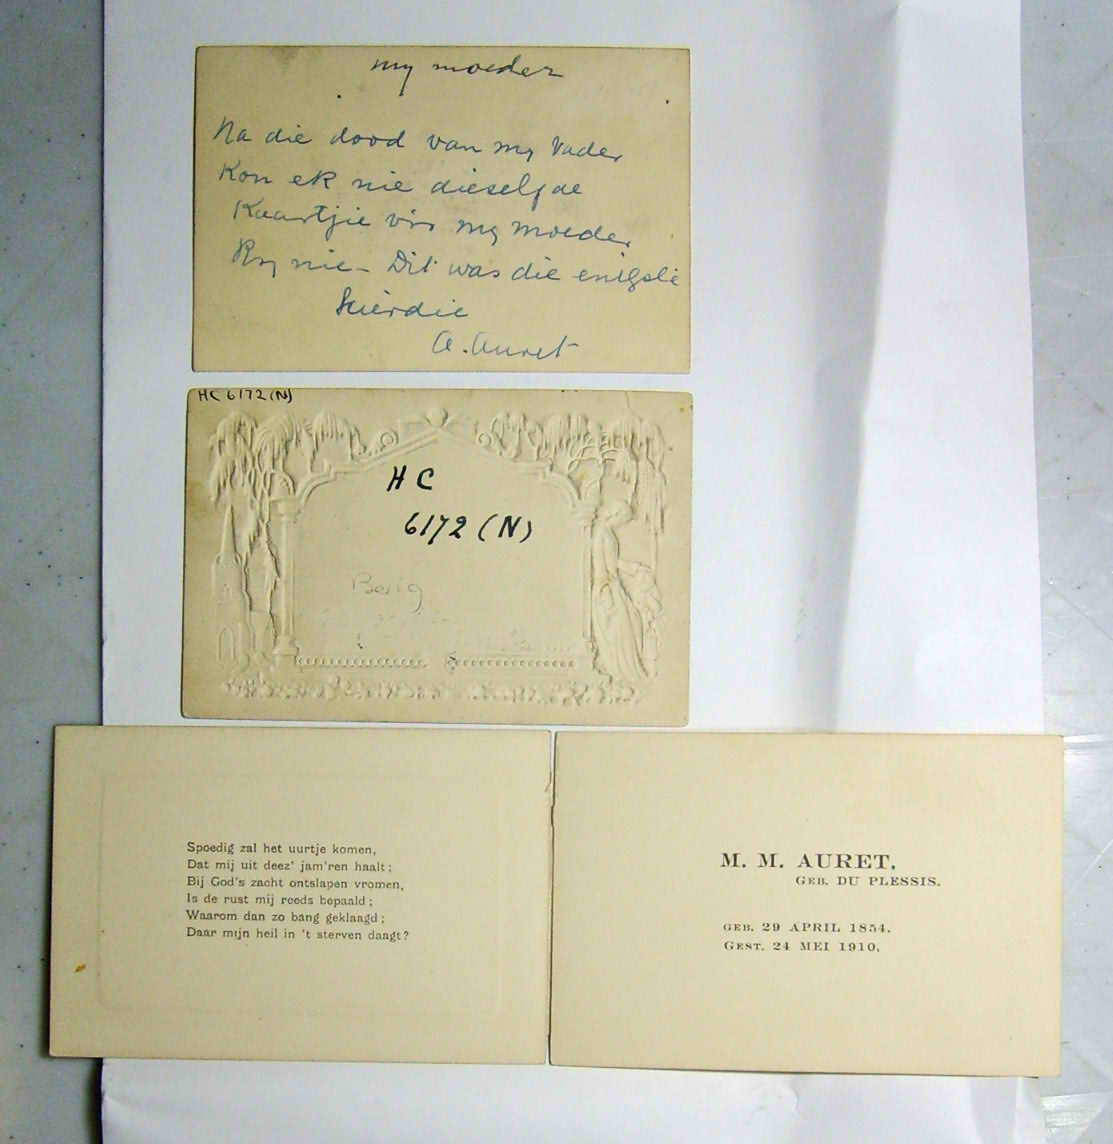 my moeder
Na die dood van my Vader
Kon ek nie dieselfde
Kaartjie vir my moeder
Kry nie - Dit was die enigste
hierdie
A. Auret
HC 6172 (N)
HC
6172 (N)
Spoedig zal het uurtje komen,
Dat mij uit deez' jam'ren haalt;
Bij God's zacht ontslapen vromen,
Is de rust mij reeds bepaald;
Waarom dan zo bang geklaagd;
Daar mijn heil in 't sterven daagt?
M. M. AURET,
GEB. DU PLESSIS.
GEB. 29 APRIL 1854.
GEST. 24 MEI 1910.